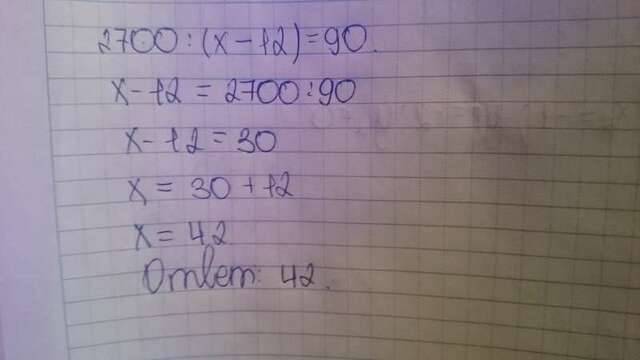 2700 : (x - 12) = 90.
x - 12 = 2700 : 90
x - 12 = 30
x = 30 + 12
x = 42
Ответ: 42.